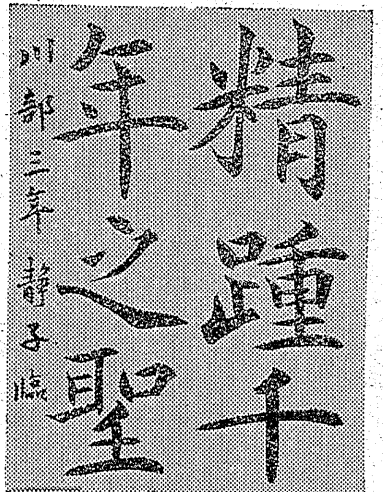 精踵千
年之聖
川部三年 靜子臨